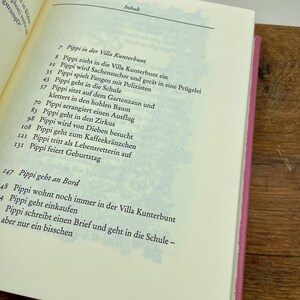 Inhalt
7 Pippi in der Villa Kunterbunt
8 Pippi zieht in die Villa Kunterbunt ein
22 Pippi wird Sachensucher und gerät in eine Prügelei
35 Pippi spielt Fangen mit Polizisten
43 Pippi geht in die Schule
57 Pippi sitzt auf dem Gartenzaun und
klettert in den hohlen Baum
70 Pippi arrangiert einen Ausflug
83 Pippi geht in den Zirkus
98 Pippi wird von Dieben besucht
108 Pippi geht zum Kaffeekränzchen
121 Pippi tritt als Lebensretterin auf
131 Pippi feiert Geburtstag
147 Pippi geht an Bord
48 Pippi wohnt noch immer in der Villa Kunterbunt
4 Pippi geht einkaufen
Pippi schreibt einen Brief und geht in die Schule –
aber nur ein bisschen